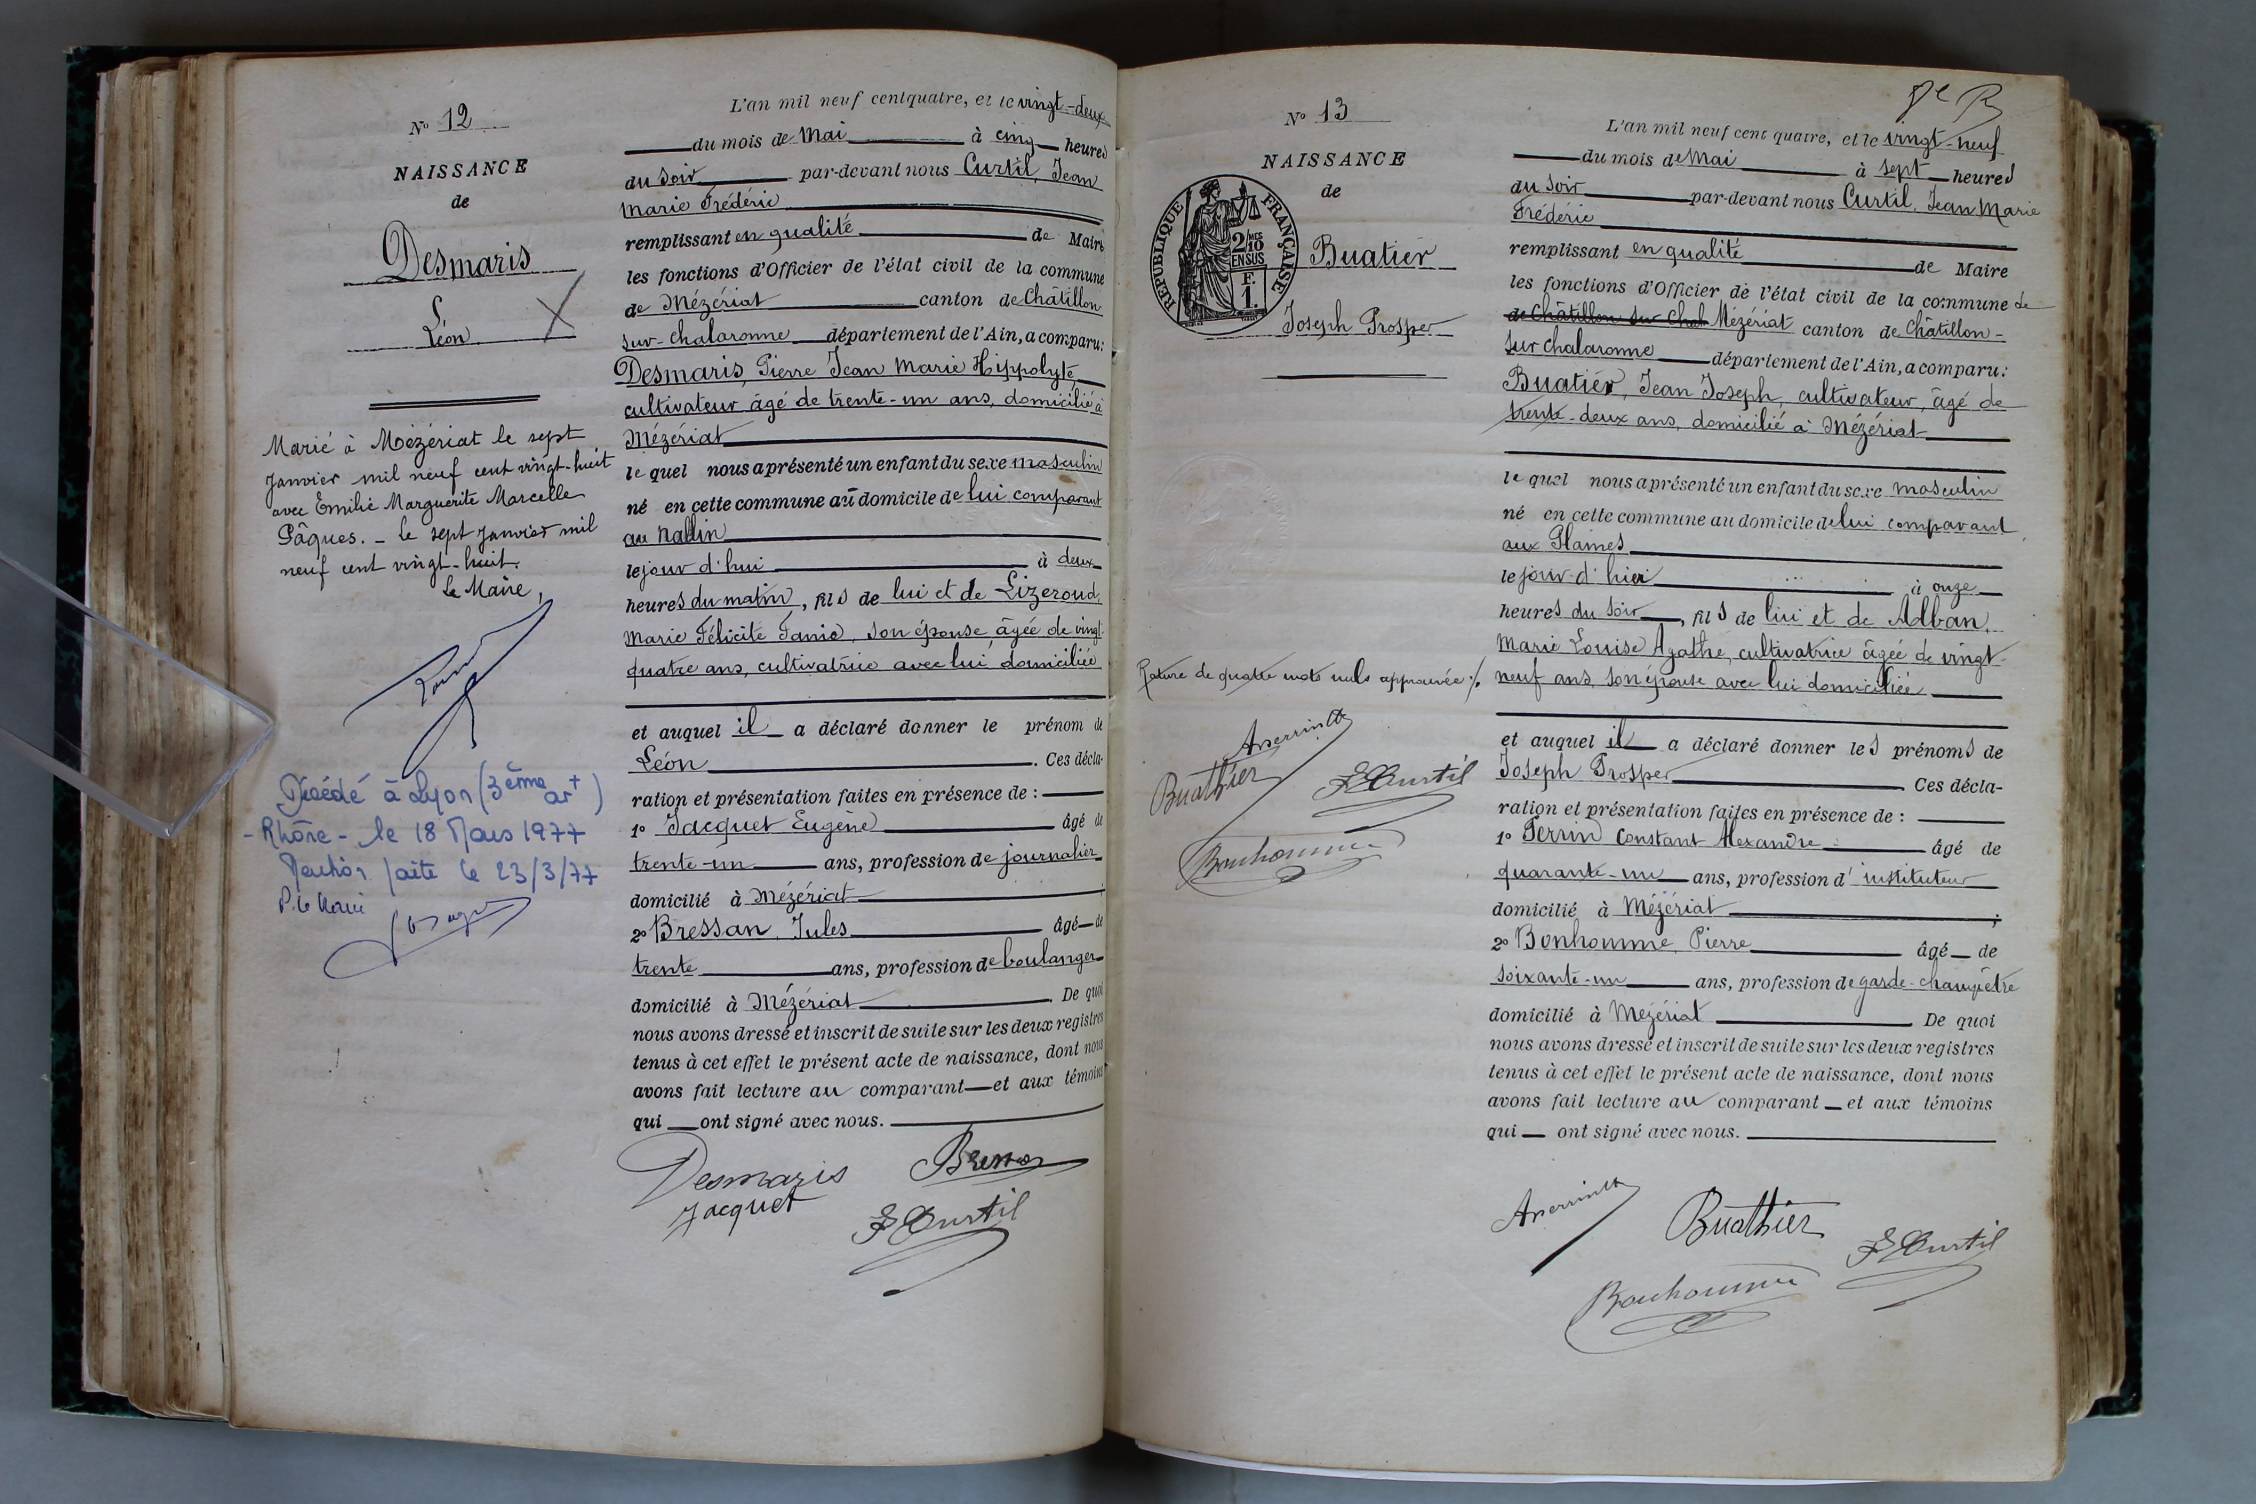 N° 12
NAISSANCE
de
Desmaris
Léon
Marié à Mézériat le sept
Janvier mil neuf cent vingt-huit
avec Emilie Marguerite Marcelle
Pâques. - le sept Janvier mil
neuf cent vingt-huit.
le Maire,
Décédé à Lyon (3ème art)
- Rhône - le 18 Mars 1977
faite le 23/3/77
P. le Maire
L'an mil neuf cent quatre, et le vingt-deux
du mois de Mai à cinq heures
du soir par-devant nous Curtil, Jean
Marie Frédéric
remplissant en qualité de Maire
les fonctions d'Officier de l'état civil de la commune
de Mézériat canton de Châtillon
sur-chalaronne département de l'Ain, a comparu:
Desmaris, Pierre Jean Marie Hippolyte,
cultivateur âgé de trente-un ans, domicilié à
Mézériat
le quel nous a présenté un enfant du sexe masculin
né en cette commune au domicile de lui comparant
au
le jour d'hui à deux
heures du matin, fils de lui et de Lizeroud,
Marie Félicité Fanie, son épouse, âgée de vingt-
quatre ans, cultivatrice avec lui domiciliée
et auquel il a déclaré donner le prénom de
Léon. Ces décla-
ration et présentation faites en présence de :
1° Jacquet Eugène âgé de
trente-un ans, profession de journalier
domicilié à Mézériat ;
2° Bressan, Jules âgé de
trente ans, profession de boulanger
domicilié à Mézériat. De quoi
nous avons dressé et inscrit de suite sur les deux registres
tenus à cet effet le présent acte de naissance, dont nous
avons fait lecture au comparant et aux témoins
qui ont signé avec nous.
Desmaris Bressan
Jacquet
F Curtil
N° 13
NAISSANCE
de
RÉPUBLIQUE FRANÇAISE
2/10 MES
EN SUS
F.
1.
Buatier
Joseph Prosper
Rature de quatre mots nuls approuvée ./.
Buathier F Curtil
Bonhomme
L'an mil neuf cent quatre, et le vingt-neuf
du mois de Mai à sept heures
du soir par-devant nous Curtil, Jean Marie
Frédéric
remplissant en qualité de Maire
les fonctions d'Officier de l'état civil de la commune de
de Châtillon sur Chal Mézériat canton de Châtillon-
sur chalaronne département de l'Ain, a comparu:
Buatier, Jean Joseph, cultivateur, âgé de
trente-deux ans, domicilié à Mézériat
le quel nous a présenté un enfant du sexe masculin
né en cette commune au domicile de lui comparant
aux Plames
le jour d'hier à onze
heures du soir, fils de lui et de Alban,
Marie Louise Agathe, cultivatrice âgée de vingt-
neuf ans, son épouse avec lui domiciliée
et auquel il a déclaré donner les prénoms de
Joseph Prosper. Ces décla-
ration et présentation faites en présence de :
1° Perrin Constant Alexandre âgé de
quarante-un ans, profession d'instituteur
domicilié à Mézériat ;
2° Bonhomme, Pierre âgé de
soixante-un ans, profession de garde-champêtre
domicilié à Mézériat De quoi
nous avons dressé et inscrit de suite sur les deux registres
tenus à cet effet le présent acte de naissance, dont nous
avons fait lecture au comparant et aux témoins
qui ont signé avec nous.
Buathier F Curtil
Bonhomme